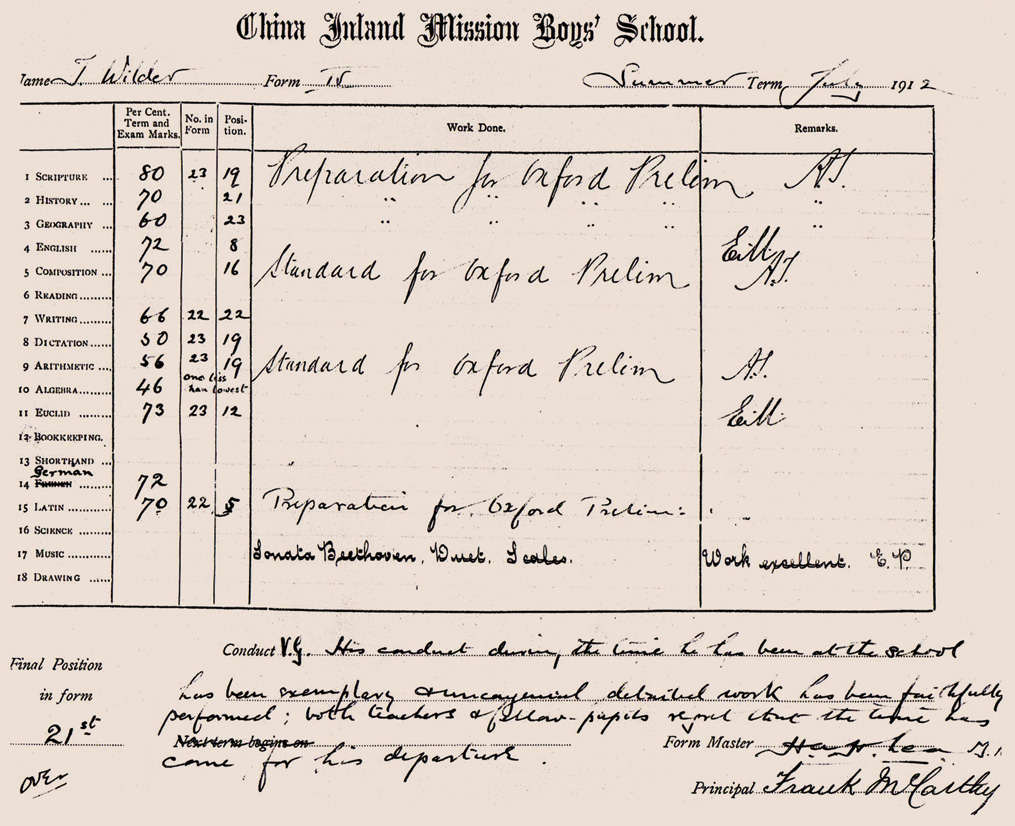 China Inland Mission Boys' School.
Name T. Wilder Form IV Summer Term, July 1912
Per Cent. Term and Exam Marks. No. in Form Posi- tion. Work Done. Remarks.
1 SCRIPTURE ... 80 23 19 Preparation for Oxford Prelim A.T.
2 HISTORY ... ... 70 21 " " " " "
3 GEOGRAPHY ... 60 23 " " " " "
4 ENGLISH ...... 72 8
5 COMPOSITION ... 70 16 Standard for Oxford Prelim A.T.
6 READING.........
7 WRITING ......... 66 22 22
8 DICTATION ...... 50 23 19
9 ARITHMETIC ... 56 23 19 Standard for Oxford Prelim A.T.
10 ALGEBRA......... 46 one less than lowest
11 EUCLID ......... 73 23 12
12 BOOKKEEPING.
13 SHORTHAND ...
German
14 FRENCH ......... 72
15 LATIN ......... 70 22 5 Preparation for Oxford Prelim:
16 SCIENCE .........
17 MUSIC ......... Sonata Beethoven, Duet, Scales. Work excellent. E.P.
18 DRAWING ......
Conduct V.G. His conduct during the time he has been at the school
has been exemplary & uncongenial detailed work has been faithfully
performed; both teachers & fellow-pupils regret that the time has
Next term begins on
come for his departure.
Final Position
in form
21st
over
Form Master
Principal Frank McCarthy